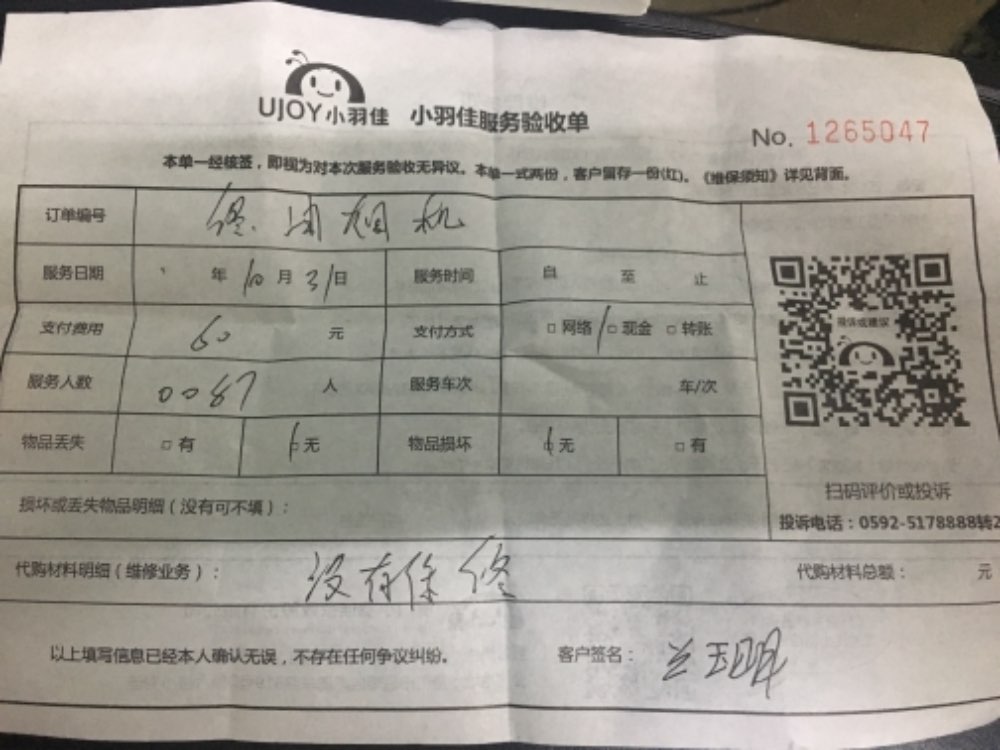 UJOY小羽佳 小羽佳服务验收单
No. 1265047
本单一经核签，即视为对本次服务验收无异议。本单一式两份，客户留存一份(红)。《维保须知》详见背面。
订单编号 烟机
服务日期 年 10 月 31 日 服务时间 自 至 止
支付费用 60 元 支付方式 □ 网络 □ 现金 □ 转账
服务人数 0087 人 服务车次 车/次
物品丢失 □ 有 □ 无 物品损坏 □ 无 □ 有
投诉或建议
扫码评价或投诉
投诉电话：0592-5178888转2
损坏或丢失物品明细（没有可不填）：
代购材料明细（维修业务）： 没有保修 代购材料总额： 元
以上填写信息已经本人确认无误，不存在任何争议纠纷。 客户签名： 兰玉明